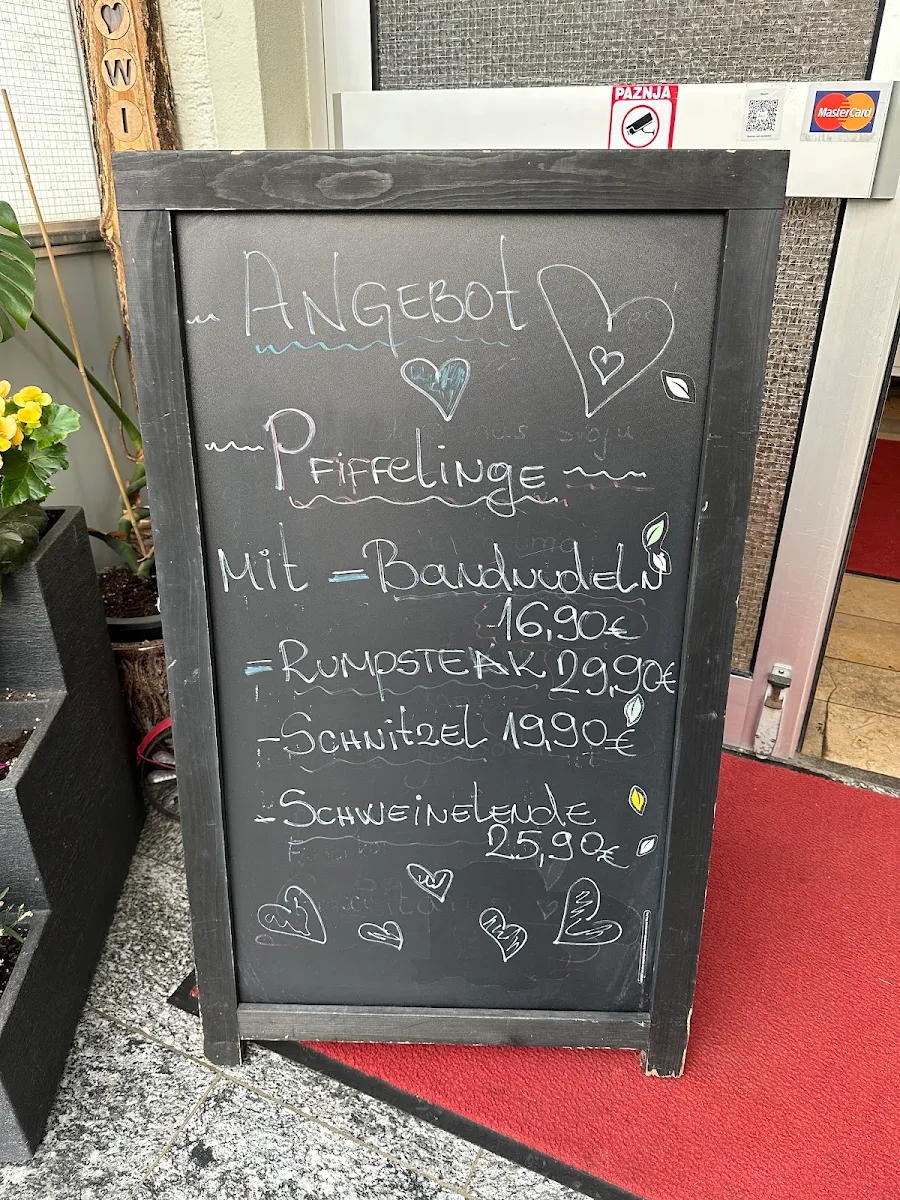 W
I
PAZNJA
MasterCard
ANGEBOt
PFiFFeLiNge
Mit = BANdNUdeLN
16,90€
= RUMPSTEAK 29,90€
- SCHNitZEL 19,90€
- SCHWEiNELENDE
25,90€